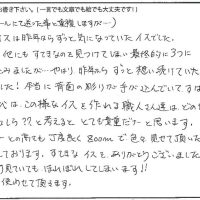 お書き下さい。(一言でも文章でも絵でも大丈夫です!)
ールにて送った事と重複しますが…)
イスは昨年からずっと気になっていたイスでした。
他にもすてきなのを見つけてしまい最終的に3つに
込みましたが…やはり昨年からずっと想い続けていた
した! 本当に背面の彫りが手が込んでいてすば
この様なイスを作れる職人さん達はどの
しら??と考えるととても貴重だナーと思います。
との高さも丁度良く800mmで色々見せて頂いた
しております。すてきなイスをありがとうございました
見ていてもほれぼれしてしまいます!!
使わせて頂きます。